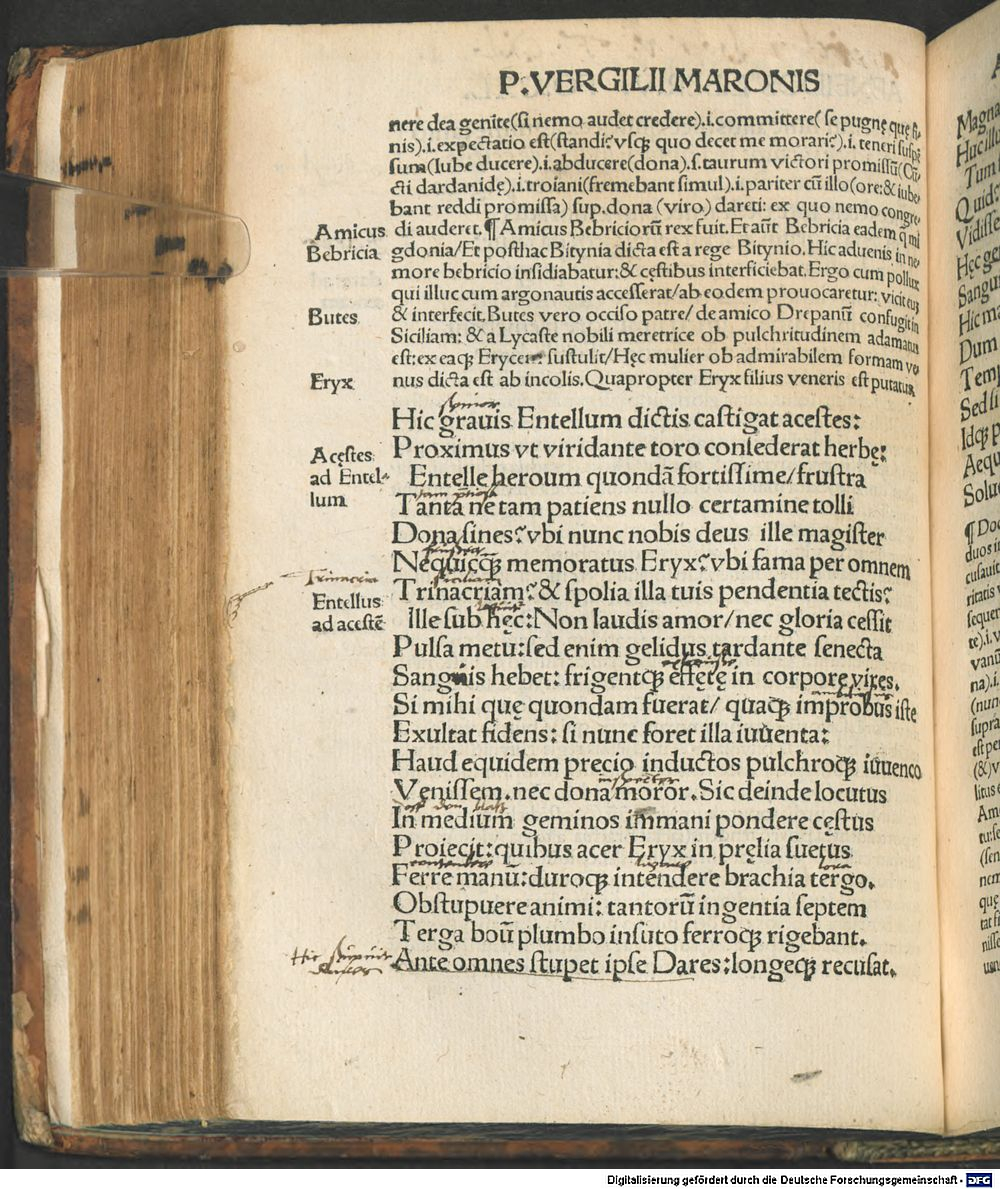 P. VERGILII MARONIS
nere dea genite(si nemo audet credere).i.committere( se pugnę quę fi-
nis).i.expectatio est(standi?vsq; quo decet me morari?).i. teneri suspē
sum(Iube ducere).i.abducere(dona).s.taurum victori promissū(Cū
cti dardanidę).i.troiani(fremebant simul).i.pariter cū illo(ore:& iube-
bant reddi promissa) sup.dona (viro) dareti: ex quo nemo congre-
Amicus di auderet.¶ Amicus Bebriciorū rex fuit. Et aūt Bebricia eadem q̄ mi
Bebricia gdonia/Et posthac Bitynia dicta est a rege Bitynio. Hic aduenis in ne-
more bebricio insidiabatur:& cęstibus interficiebat. Ergo cum pollux
qui illuc cum argonautis accesserat/ab eodem prouocaretur: vicit eū
Butes & interfecit. Butes vero occiso patre/ de amico Drepanū confugit in
Siciliam: & a Lycaste nobili meretrice ob pulchritudinem adamatus
est:ex eaq; Erycem sustulit/Hęc mulier ob admirabilem formam ve-
Eryx nus dicta est ab incolis. Quapropter Eryx filius veneris est putatus.
Hic grauis Entellum dictis castigat acestes:
Acęstes Proximus vt viridante toro consederat herbę:
ad Entel- Entelle heroum quondā fortissime/frustra
lum Tanta ne tam patiens nullo certamine tolli
Dona sines?vbi nunc nobis deus ille magister
Nequicq; memoratus Eryx?vbi fama per omnem
Trinacria Trinacriam?& spolia illa tuis pendentia tectis?
Entellus Ille sub hęc:Non laudis amor/nec gloria cessit
ad acestē Pulsa metu:sed enim gelidus tardante senecta
Sanguis hebet: frigentq; effętę in corpore vires.
Si mihi quę quondam fuerat/ quaq; improbus iste
Exultat fidens: si nunc foret illa iuuenta:
Haud equidem precio inductos pulchroq; iuuenco
Venissem.nec dona moror. Sic deinde locutus
In medium geminos immani pondere cęstus
Proiecit:quibus acer Eryx in pręlia suetus
Ferre manū:duroq; intendere brachia tergo.
Obstupuere animi: tantorū ingentia septem
Terga boū plumbo insuto ferroq; rigebant.
Ante omnes stupet ipse Dares:longeq; recusat.
Magna
Huc illu
Tum
Quid:
Vidisse
Hęc ge
Sangu
Hic ma
Dum
Temp
Sed si
Idq; p
Aequ
Solue
Digitalisierung gefördert durch die Deutsche Forschungsgemeinschaft - DFG